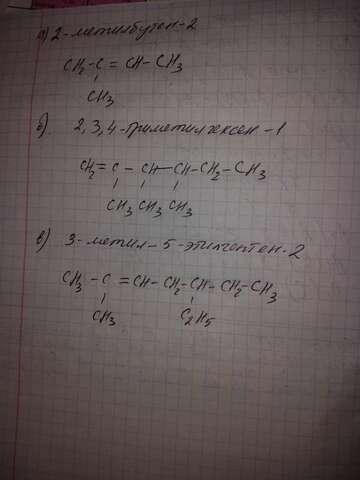 а) 2-метилбутен-2
CH₃-C=CH-CH₃
CH₃
б) 2,3,4-триметилгексен-1
CH₂=C-CH-CH-CH₂-CH₃
CH₃ CH₃ CH₃
в) 3-метил-5-этилгептен-2
CH₃-C=CH-CH₂-CH-CH₂-CH₃
CH₃ C₂H₅